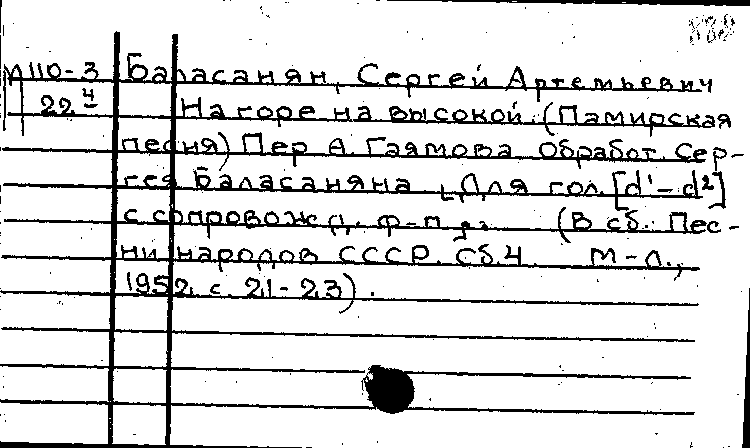 838
М110-3 Баласанян, Сергей Артемьевич
22ч На горе на высокой. (Памирская
песня) Пер А. Гаямова Обработ. Сер-
гея Баласаняна. Для гол. [d¹-d²]
с сопровожд. ф-п. (В сб.: Пес-
ни народов СССР. Сб.4. М-Л.,
1952, с. 21-23).